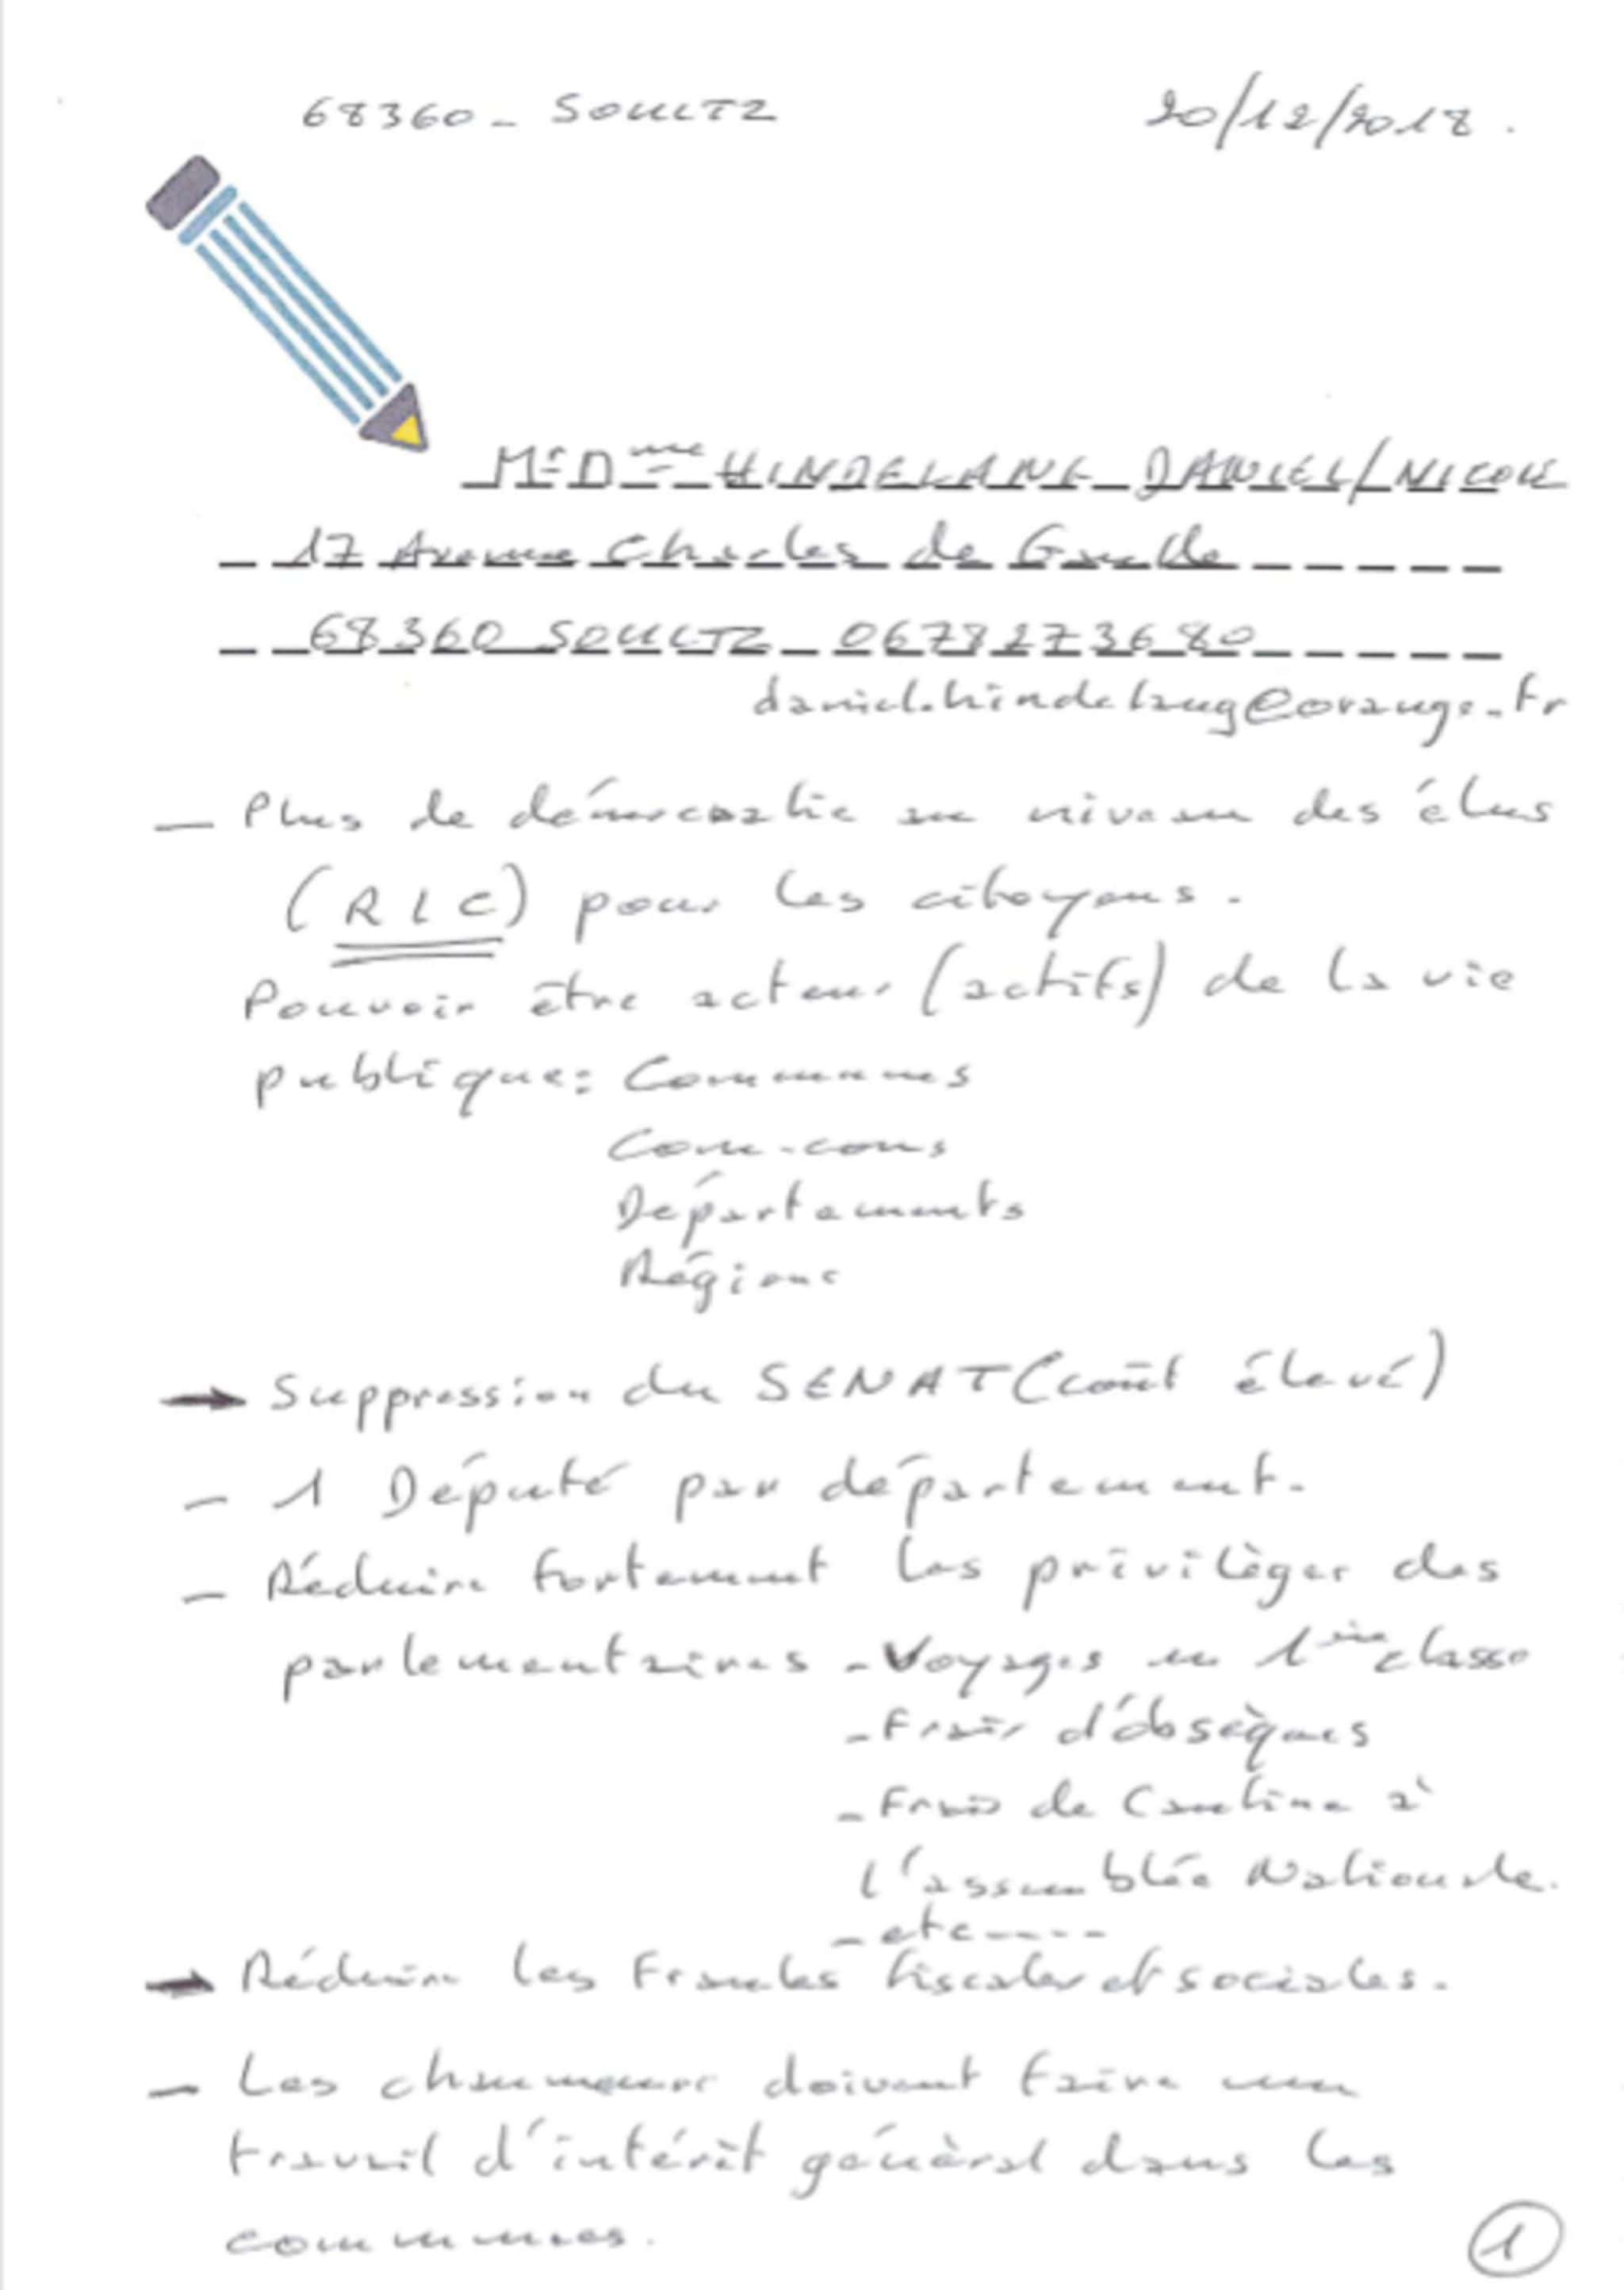 68360 - SOULTZ 20/12/2018.
Mr Dme HINDELANG DANIEL/NICOLE
17 Avenue Charles de Gaulle
68360 SOULTZ 0678273680
daniel.hindelang@orange.fr
— Plus de démocratie au niveau des élus
(RIC) pour les citoyens.
Pouvoir être acteur (actifs) de la vie
publique: Communes
Com-coms
Départements
Régions
→ Suppression du SENAT (coût élevé)
- 1 Député par département.
- Réduire fortement les privilèges des
parlementaires - Voyages en 1ière classe
- Frais d'obsèques
- Frais de Cantine à
l'assemblée Nationale.
- etc----
→ Réduire les Fraudes fiscales et sociales.
- Les chaumeurs doivent faire un
travail d'intérêt général dans les
communes.
1